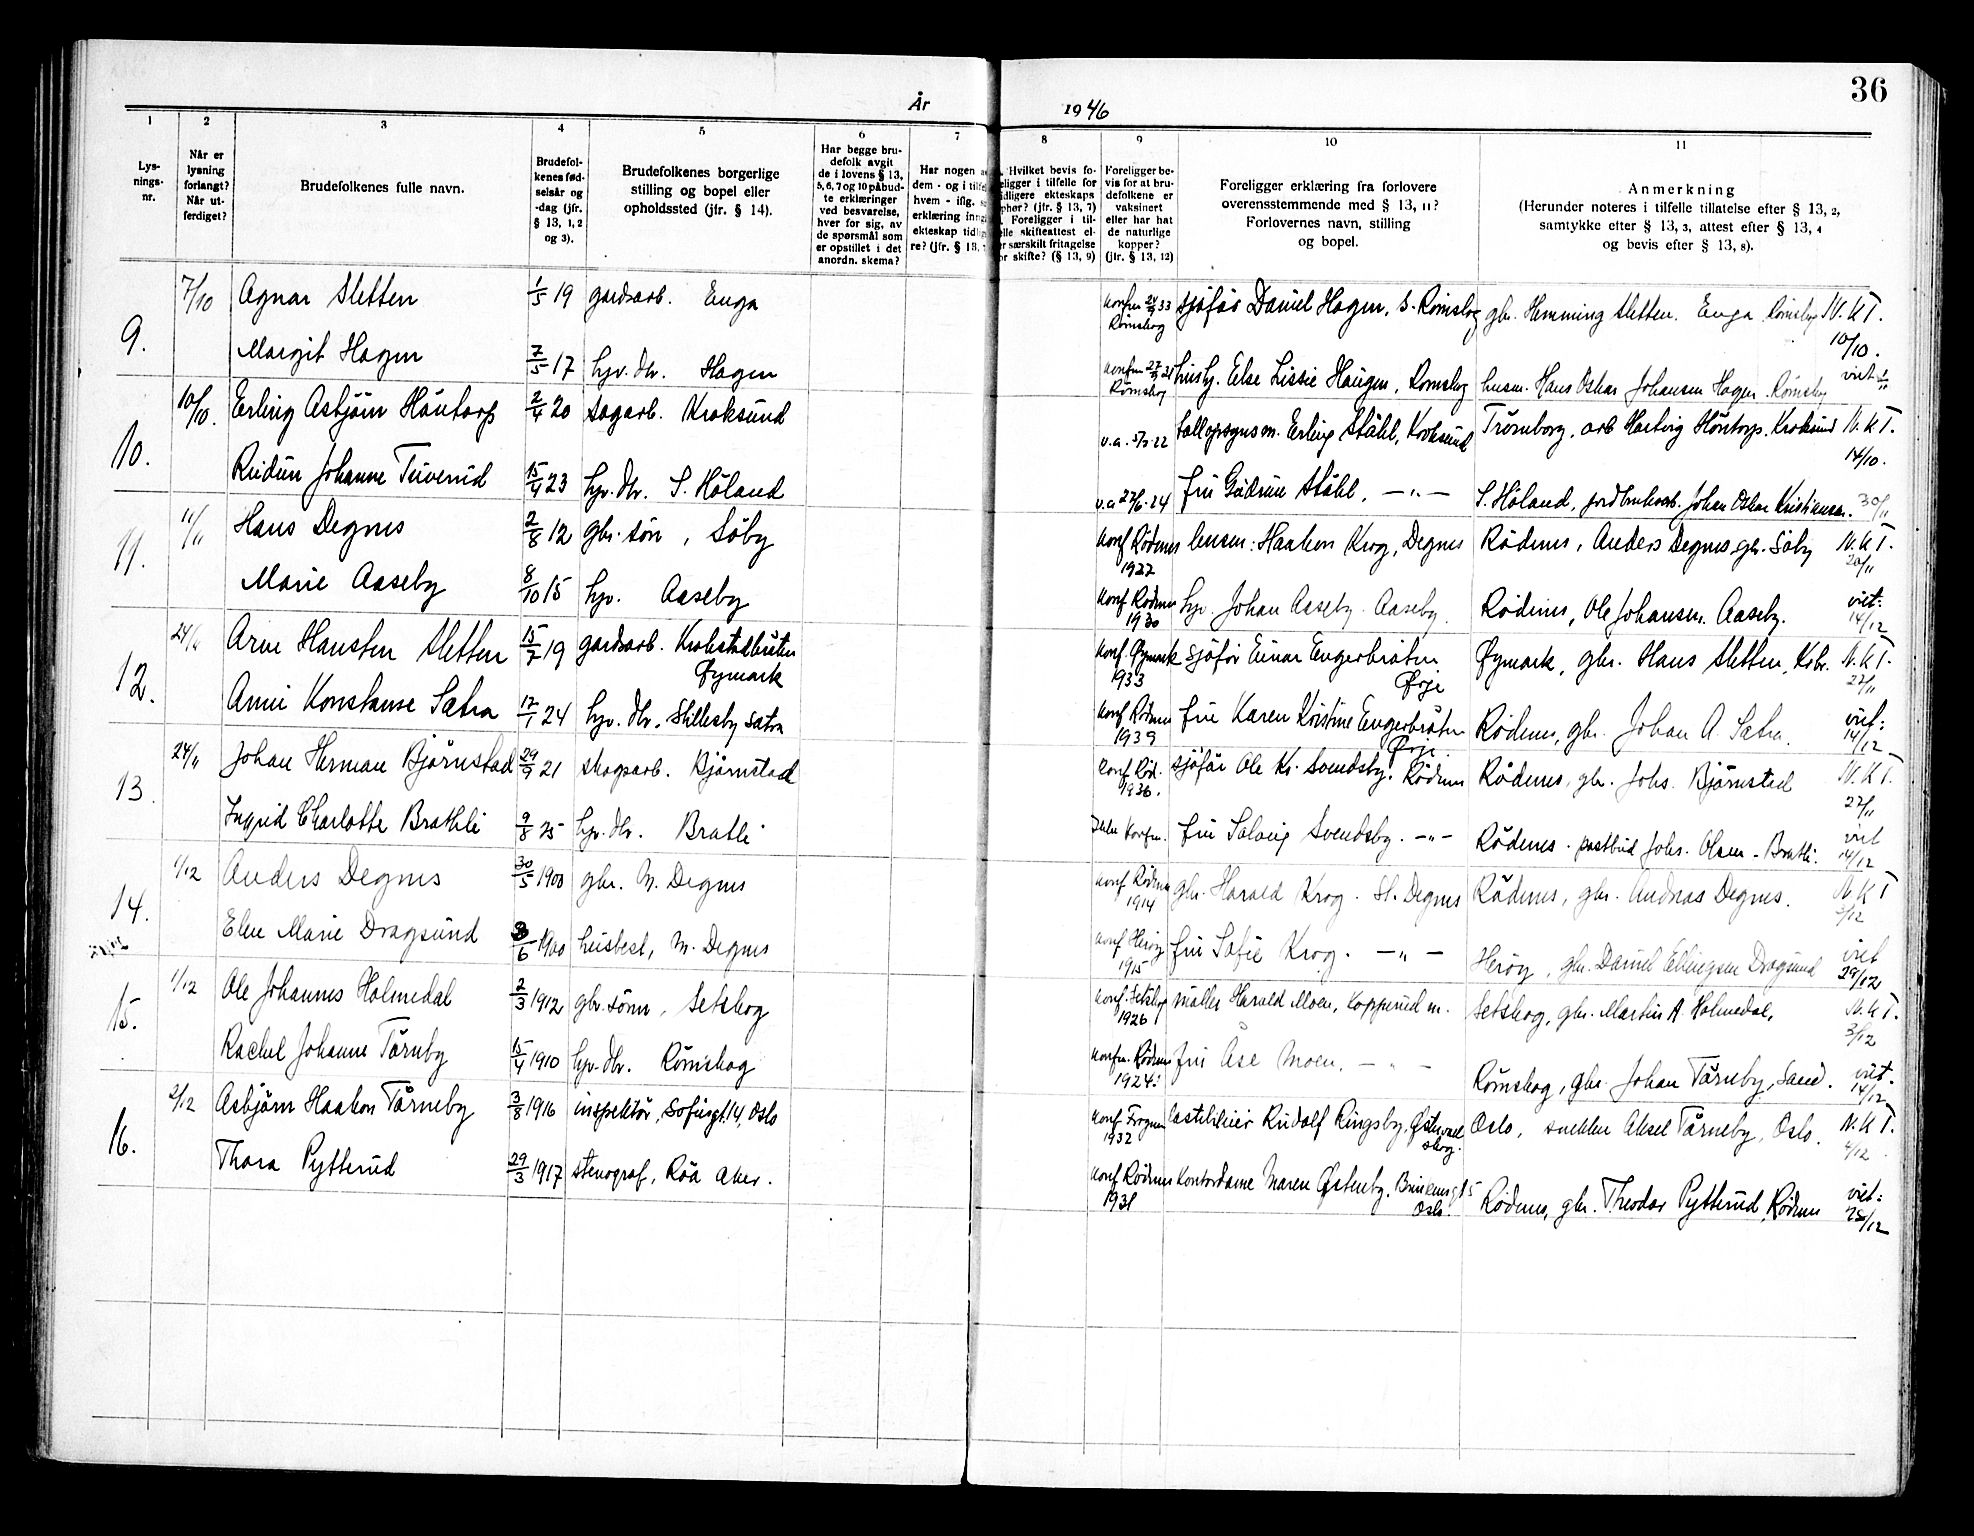 36
År 1946
1 2 3 4 5 6 7 8 9 10 11
Lys-
nings-
nr.
Når er
lysning
forlangt?
Når ut-
ferdiget?
Brudefolkenes fulle navn.
Brudefol-
kenes fød-
selsår og
-dag (jfr.
§ 13, 1, 2
og 3).
Brudefolkenes borgerlige
stilling og bopel eller
opholdssted (jfr. § 14).
Har begge bru-
defolk avgit
de i lovens § 13,
5, 6, 7 og 10 påbud-
te erklæringer
ved besvarelse,
hver for sig, av
de spørsmål som
er opstillet i det
anordn. skema?
Har nogen
dem - og i
hvem - iflg.
erklæring
ekteskap
re? (jfr. § 13,
Hvilket bevis fo-
religger i tilfelle for
tidligere ekteskaps
ophør? (jfr. § 13, 7)
Foreligger i til-
felle skifteattest el-
ler særskilt fritagelse
for skifte? (§ 13, 9)
Foreligger be-
vis for at bru-
defolkene er
vaksinert
eller har hat
de naturlige
kopper?
(jfr. § 13, 12)
Foreligger erklæring fra forlovere
overensstemmende med § 13, 11?
Forlovernes navn, stilling
og bopel.
Anmerkning
(Herunder noteres i tilfelle tillatelse efter § 13, 2,
samtykke efter § 13, 3, attest efter § 13, 4
og bevis efter § 13, 8).
9. 7/10 Agnar Sletten 1/5 19 gardsarb. Enga konfm 33 Rømskog sjåfør Daniel Hagen, S. Rømskog gbr. Hemming Sletten. Enga Rømskog N.K.T. 10/10.
Margit Hagen 7/5 17 hjv. dtr. Hagen konfm Rømskog husby. Else Lissie Haugen, Rømskog husm. Hans Oskar Johansen Hagen Rømskog viet
10. 10/10. Erling Asbjørn Høntorp 2/4 20 sagarb. Kroksund v.a. 22 tollopsynsm. Erling Ståhl, Kroksund Trømborg, arb Hartvig Høntorp. Kroksund N.K.T. 14/10.
Reidun Johanne Tuverud 15/4 23 hjv. dtr. S. Høland v.a 27/6-24 fru Gudrun Ståhl, — " — S. Høland, jordbruksarb. Johan Oskar Kristiansen. 30/11
11. 11/11 Hans Degnes 2/8 12 gbr. søn, Søby konf Rødenes 1927 lensm: Haakon Krog, Degnes Rødenes, Anders Degnes gbr. Søby N.K.T. 20/11
Marie Aaseby 8/10 15 hjv. Aaseby konf Rødenes 1930 hjv. Johan Aaseby. Aaseby. Rødenes, Ole Johansen. Aaseby. viet: 14/12
12. 24/11 Arne Hansten Sletten 15/7 19 gardsarb. Krokstadbråten Øymark konf. Øymark 1933 sjåfør Einar Engerbråten Ørje Øymark, gbr. Hans Sletten, Krbr. N.K.T. 27/11
Anni Konstanse Sætra 17/1 24 hjv. dtr. Skillesby Sætra konf Rødenes 1939 fru Karen Kristine Engerbråten Ørje Rødenes, gbr. Johan A. Sætra. viet: 14/12
13. 24/11 Johan Herman Bjørnstad 29/9 21 skogsarb. Bjørnstad konf Rød. 1936. sjåfør Ole Kr. Svendsby. Rødenes Rødenes, gbr. Johs. Bjørnstad N.K.T. 27/11
Ingrid Charlotte Brathli 9/8 25 hjv. dtr. Bratli Ikke konfm. fru Solveig Svendsby. — " — Rødenes. postbud Johs. Olsen - Bratli. viet 14/12
14. 1/12 Anders Degnes 30/5 1900 gbr. N. Degnes konf Rødenes 1914 gbr. Harald Krog. St. Degnes Rødenes, gbr. Andreas Degnes. N.K.T 3/12
Eline Marie Dragsund 6 1900 husbest, N. Degnes konf Herøy 1915 fru Sofie Krog. — " — Herøy, gbr. Daniel Ellingsen Dragsund viet 29/12
15. 1/12 Ole Johannes Holmedal 2/3 1912 gbr. sønn, Setskog konf. Setskog 1926 møller Harald Moen, Kopperud m. Setskog, gbr. Martin A. Holmedal, N.K.T. 3/12
Rachel Johanne Tårnby 15/4 1910 hjv. dtr. Rømskog konfm. Rødenes 1924: fru Åse Moen. — " — Rømskog, gbr. Johan Tårneby, Sand. viet. 14/12
16. 3/12 Asbjørn Haakon Tårneby 3/8 1916 inspektør, Sofiesgt. 14, Oslo konf. Frogner 1932 Rudolf Ringsby, Oslo, snekker Aksel Tårneby, Oslo. N.K.T. 4/12
Thora Pytterud 29/3 1917 stenograf, Røa Aker. konf Rødenes 1931 kontordame Maren Østenby. Oslo. Rødenes, gbr. Theodor Pytterud, Rødenes viet: 28/12